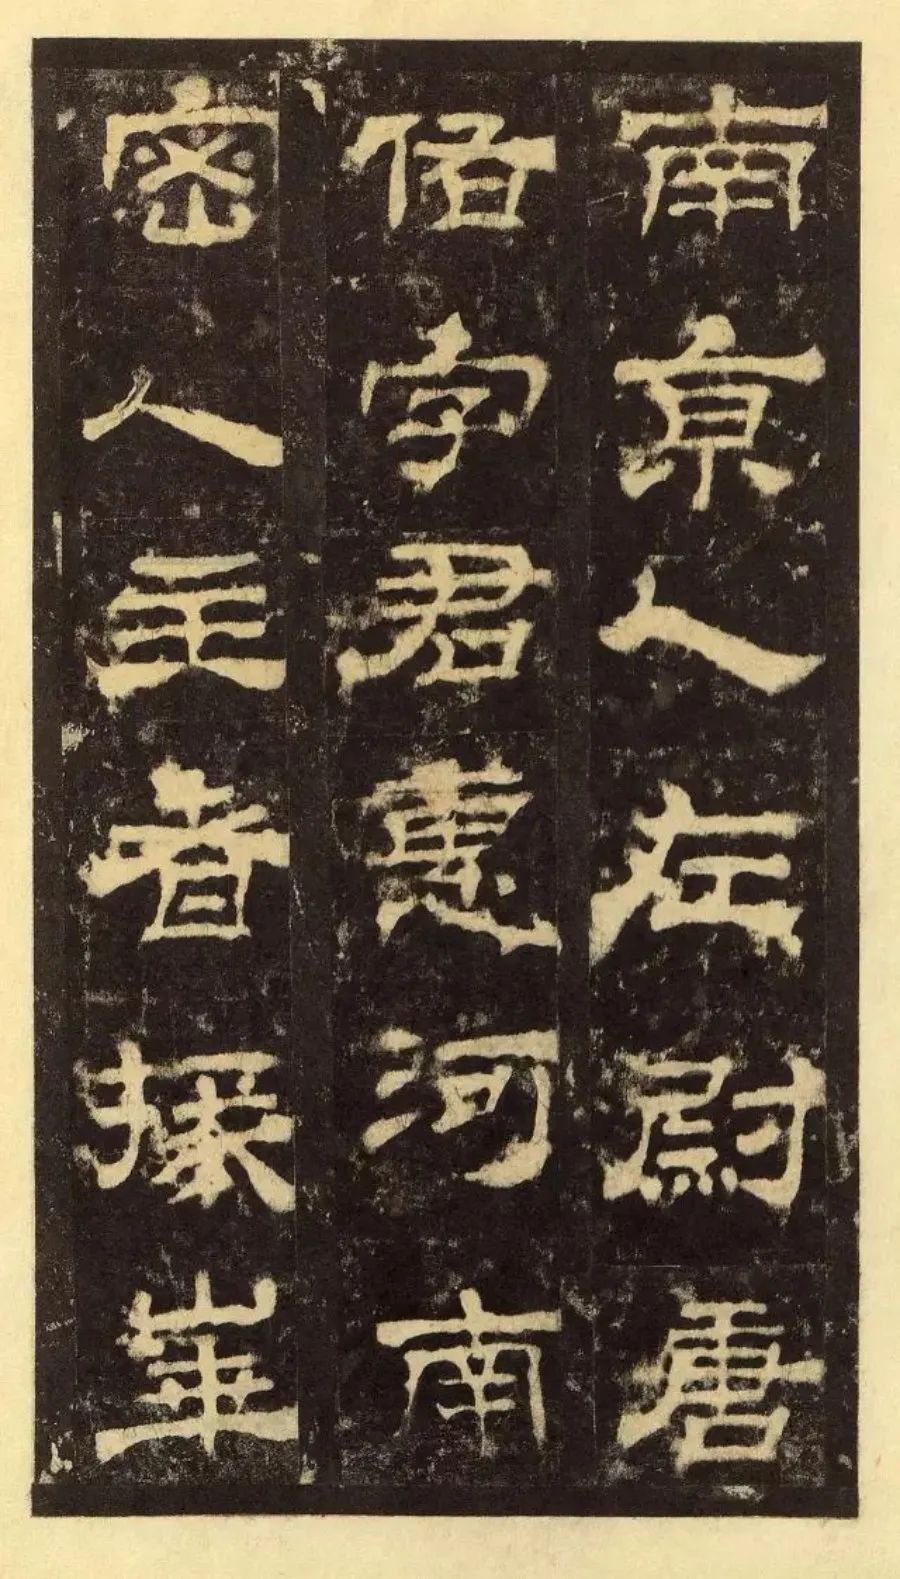 南亰人左尉唐
佑字君惠河南
密人主者掾華